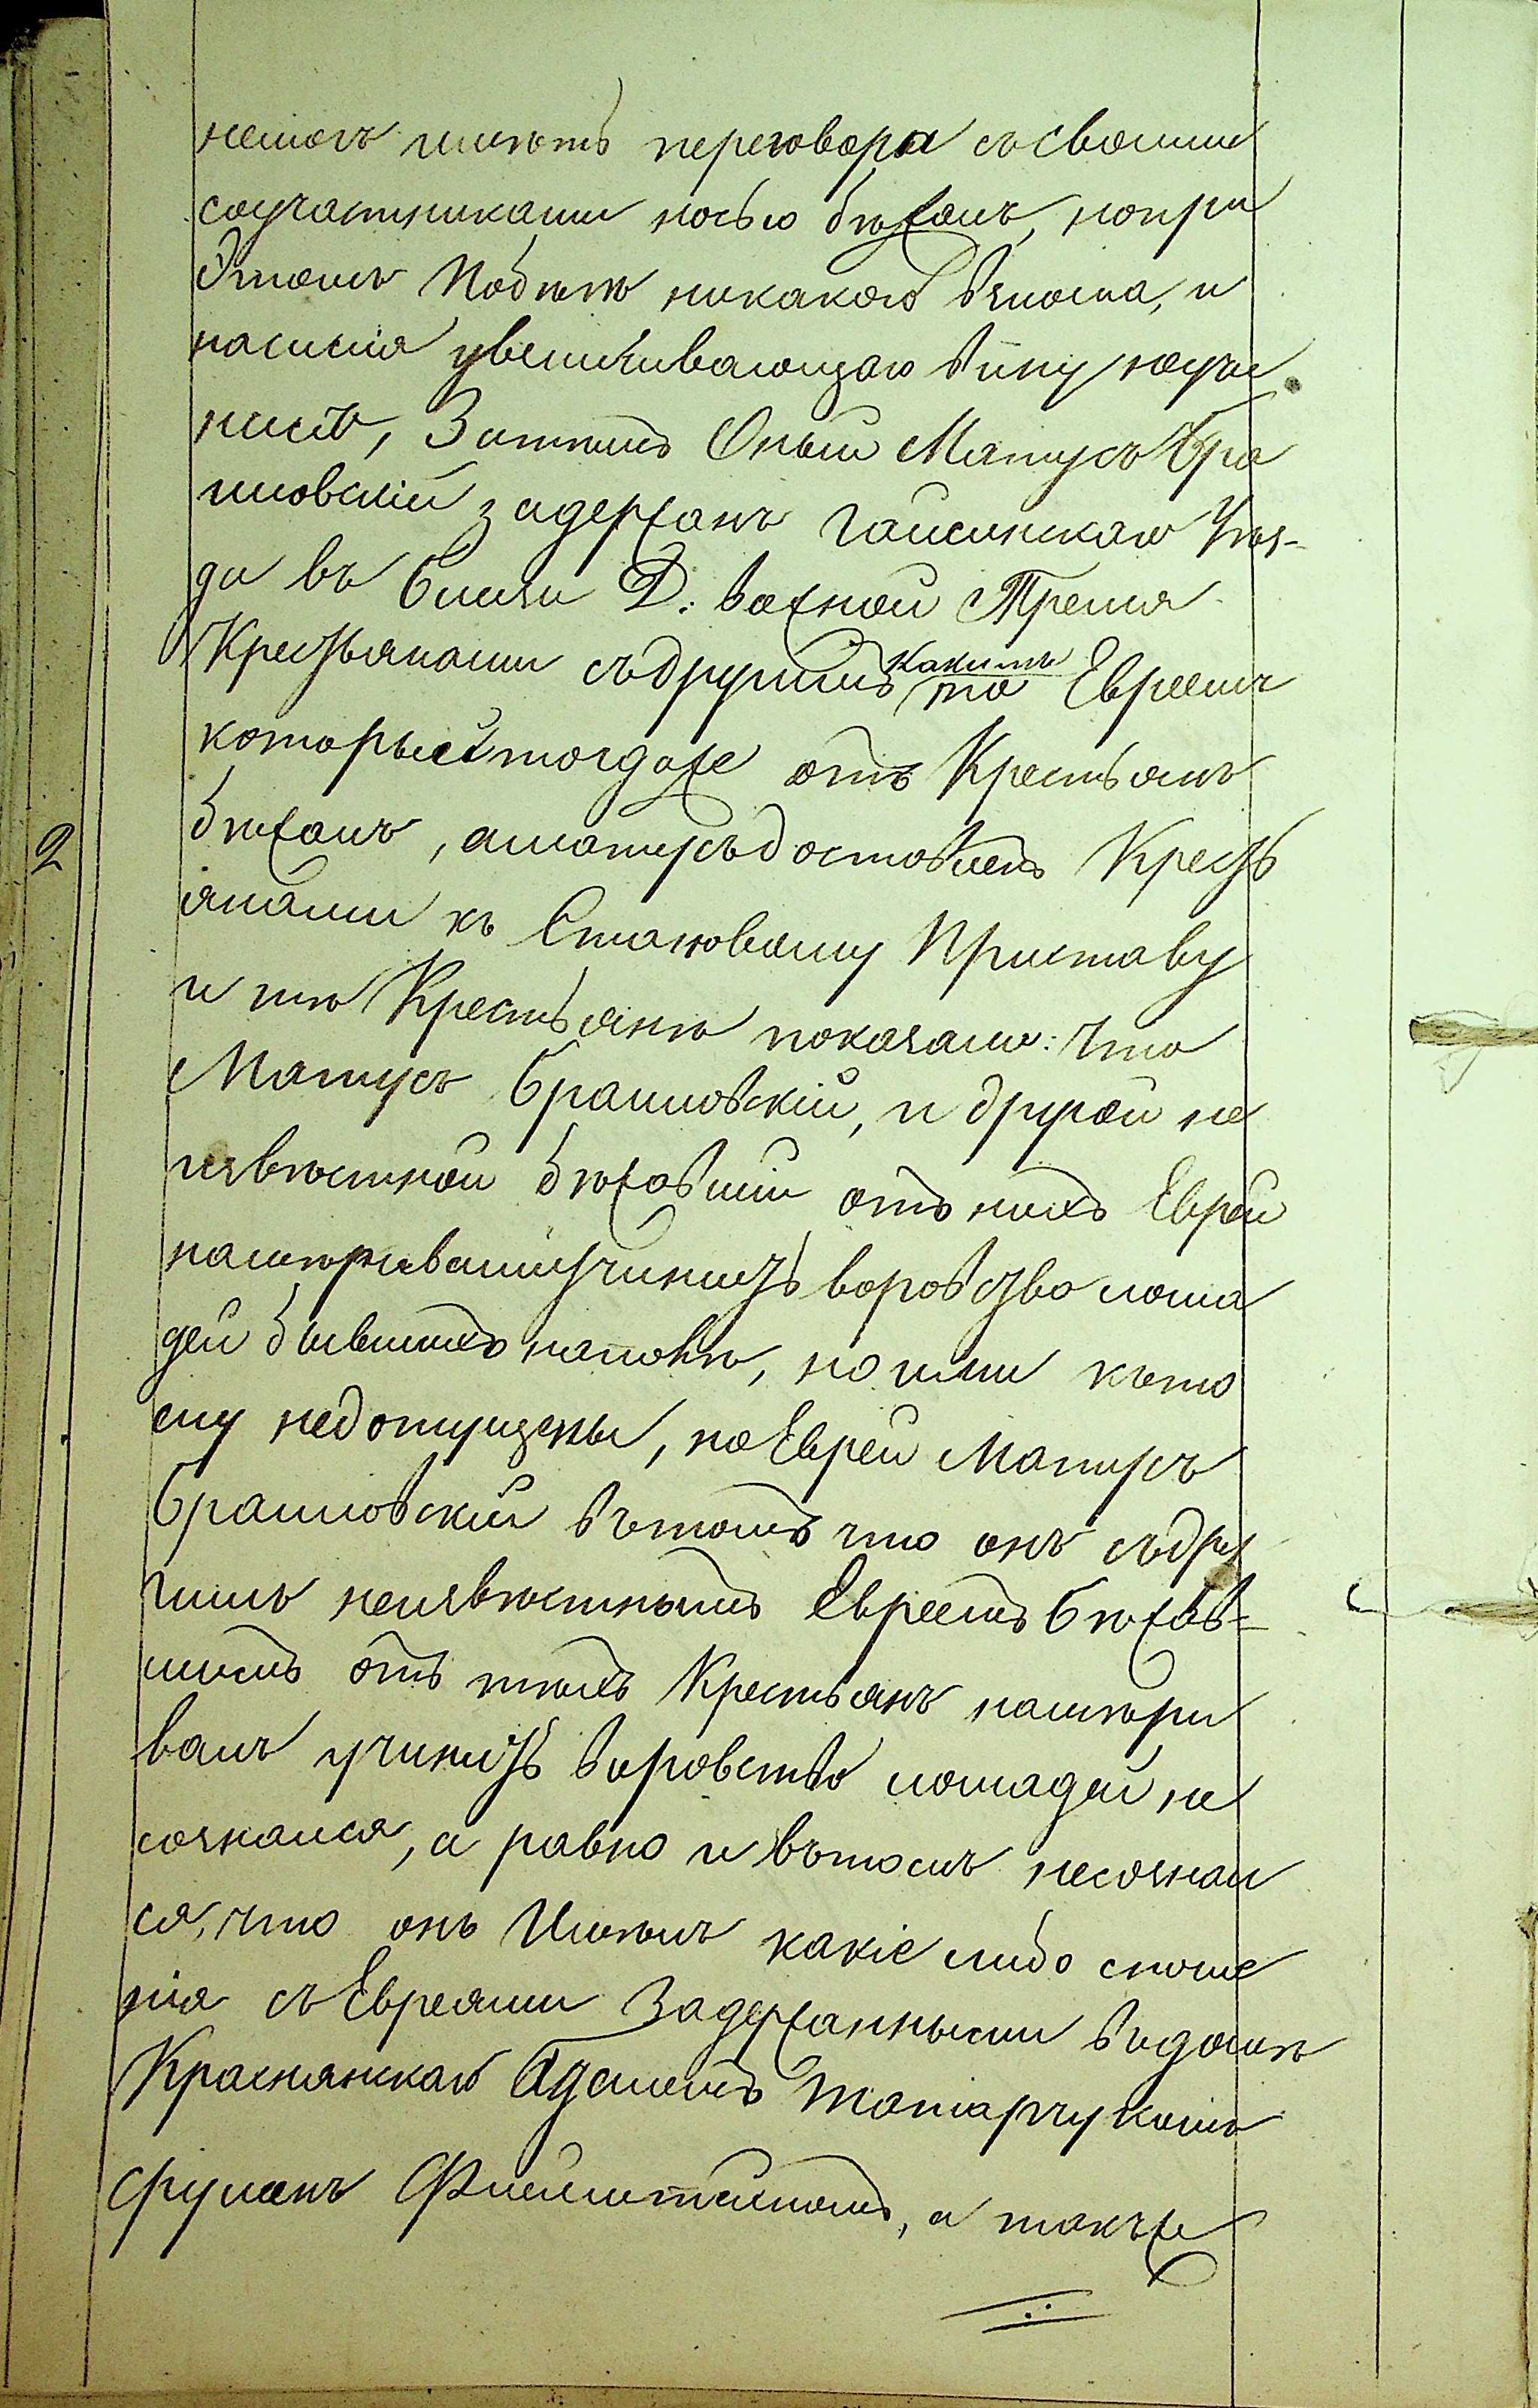 немогъ имѣть переговора съ своими
соучастниками ночью бѣжалъ, нопри
Этомъ Побѣгѣ никакого взлома, и
насилія увеличивающаго вину неучи
нилъ, Затѣмъ Оный Матусъ Бра
иловскій задержанъ Гайсинскаго Уѣз-
да въ близи Д: важной Тремя
Крестьянами съдругимъ какимъ то Евреемъ
который тогдаже отъ Крестьянъ
бѣжалъ, аматусъ доставленъ Кресть
янами къ Становому Приставу
и тѣ Крестьянѣ показали: что
Матусъ Браиловскій, и другой не
извѣстной бѣжавшій отъ нихъ Еврей
намѣривались учинить воровство лоша
дей бывшихъ наповѣ, но ими къто
му недопущены, но Еврей Матусъ
Браиловскій вътомъ что онъ съдру
гимъ неизвѣстнымъ Евреемъ бѣжав-
шимъ отъ тѣхъ Крестьянъ намѣри
валъ учинить воровство лошадей не
сознался, а равно и вътомъ несознал
ся, что онъ Имѣлъ какіе либо сноше
нія съ Евреями Задержанными въдомѣ
Краснянскаго Адамомъ Татарчукомъ
Сруломъ Флейштейномъ, а такъже
2